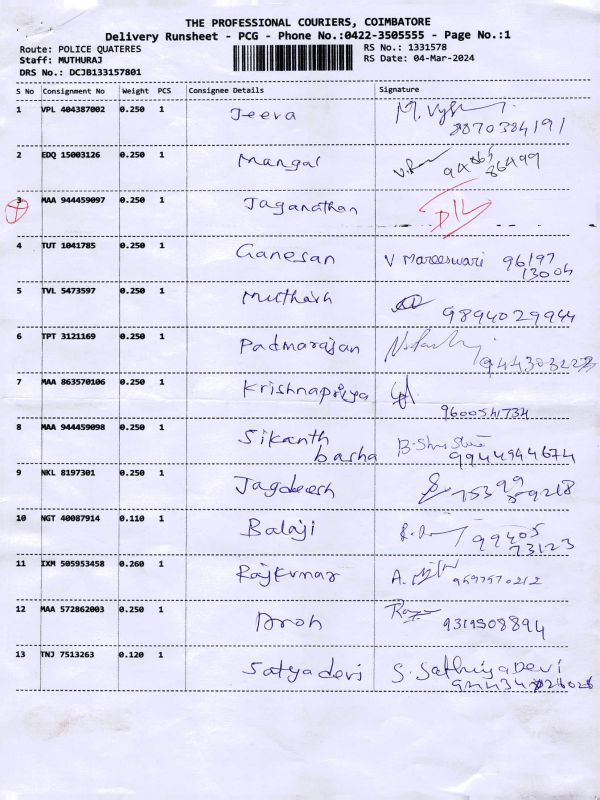 THE PROFESSIONAL COURIERS, COIMBATORE
Delivery Runsheet - PCG - Phone No.:0422-3505555 - Page No.:1
Route: POLICE QUATERES RS No.: 1331578
Staff: MUTHURAJ RS Date: 04-Mar-2024
DRS No.: DCJB133157801
S No Consignment No Weight PCS Consignee Details Signature
1 VPL 404387002 0.250 1 Jeeva
8870384191
2 EDQ 15003126 0.250 1 Mangal
3 MAA 944459097 0.250 1 Jaganathan D/L
4 TUT 1041785 0.250 1 Ganesan V Mareeswari 96197
13004
5 TVL 5473597 0.250 1
9894029944
6 TPT 3121169 0.250 1 Padmarajan
7 MAA 863570106 0.250 1 Krishnapriya
9600541734
8 MAA 944459098 0.250 1 Sikanth
basha
9944944674
9 NKL 8197301 0.250 1 Jagdeesh
10 NGT 40087914 0.110 1 Balaji 99405
73123
11 IXM 505953458 0.260 1 Rajkumar
12 MAA 572862003 0.250 1
9319508894
13 TNJ 7513263 0.120 1 Satyadevi S. Sathiya Devi